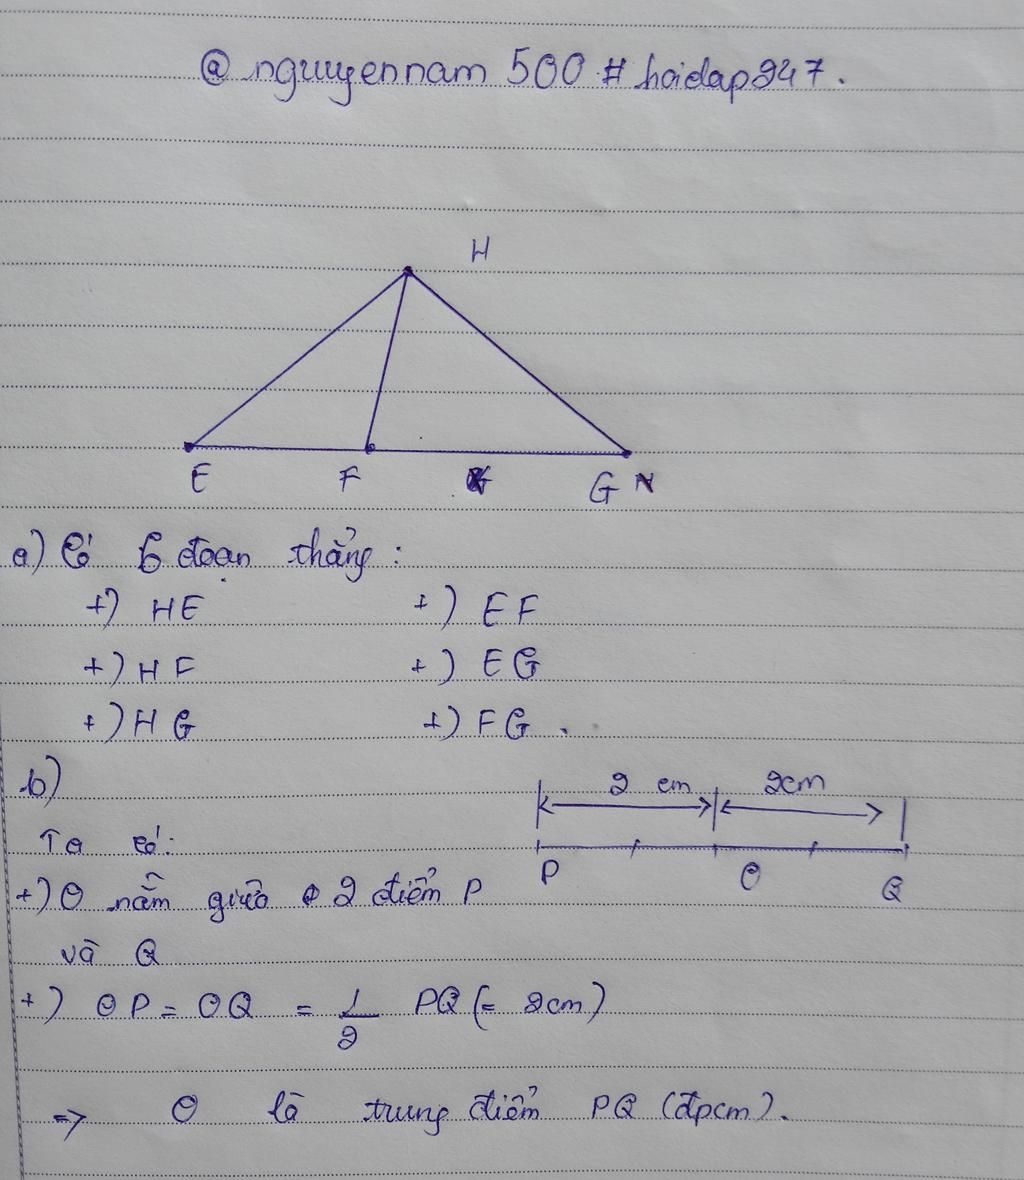 @ nguyennam 500 # hoidap247.
H
E F G N
a) Có 6 đoạn thẳng:
+) HE +) EF
+) HF +) EG
+) HG +) FG.
b)
2 cm 2cm
P O Q
Ta có:
+) O nằm giữa 2 điểm P
và Q
+) OP = OQ = 1/2 PQ (= 2cm)
=> O là trung điểm PQ (đpcm).